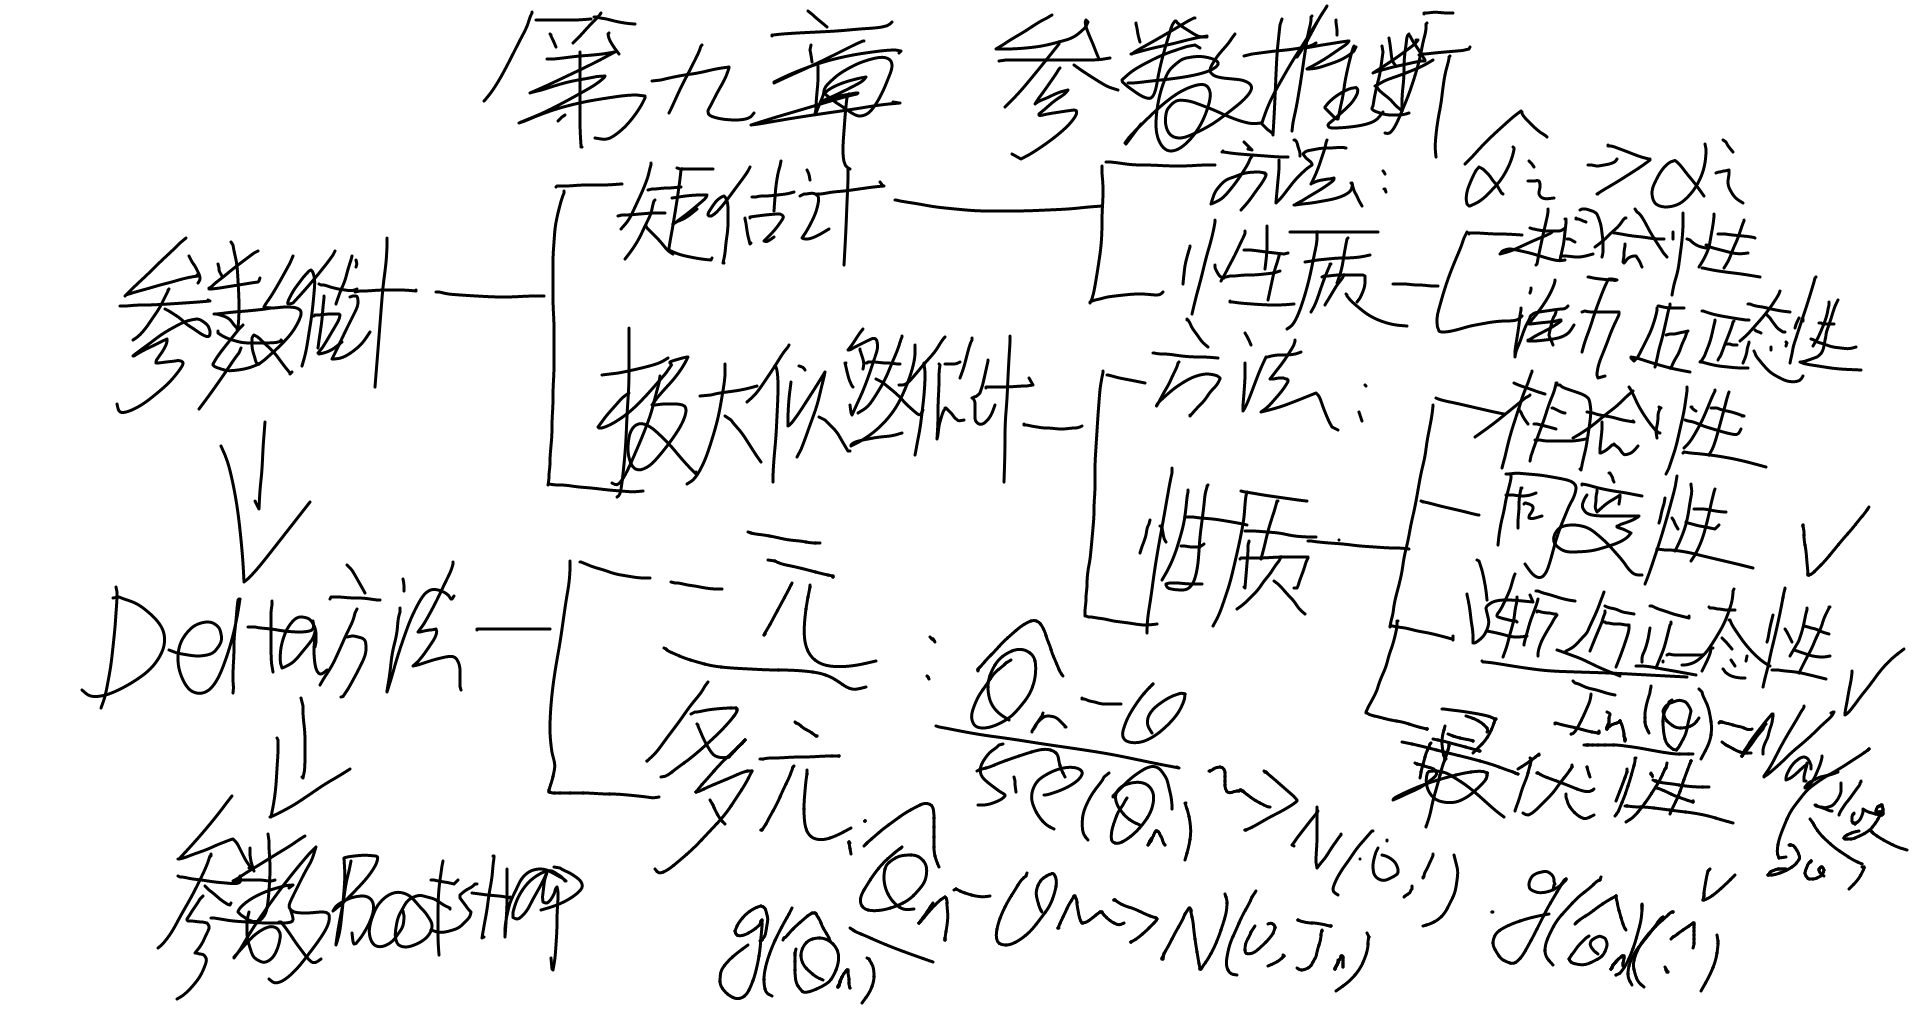 第九章 参数推断
参数估计
矩估计
方法: α̂i ⇒ αi
性质
相合性
渐近正态性
极大似然估计
方法:
性质
相合性
同变性 ✓
渐近正态性 ✓
In(θ) = n Var
最优性
Delta方法
一元: (θ̂n - θ) / se(θ̂n) ⇝ N(0,1)
多元: θ̂n - θ ⇝ N(0, Jn)
g(θ̂n)
参数Bootstrap